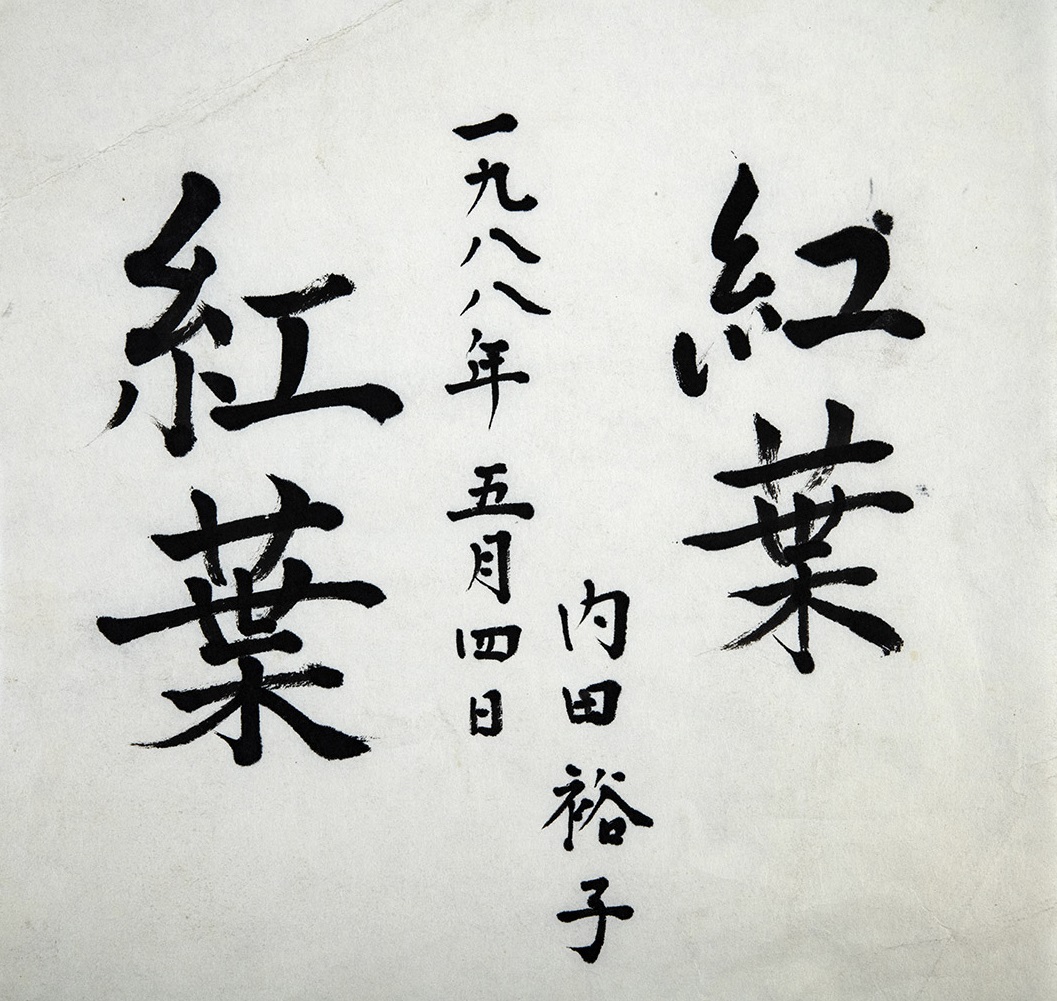 紅葉
内田裕子
一九八八年五月四日
紅葉